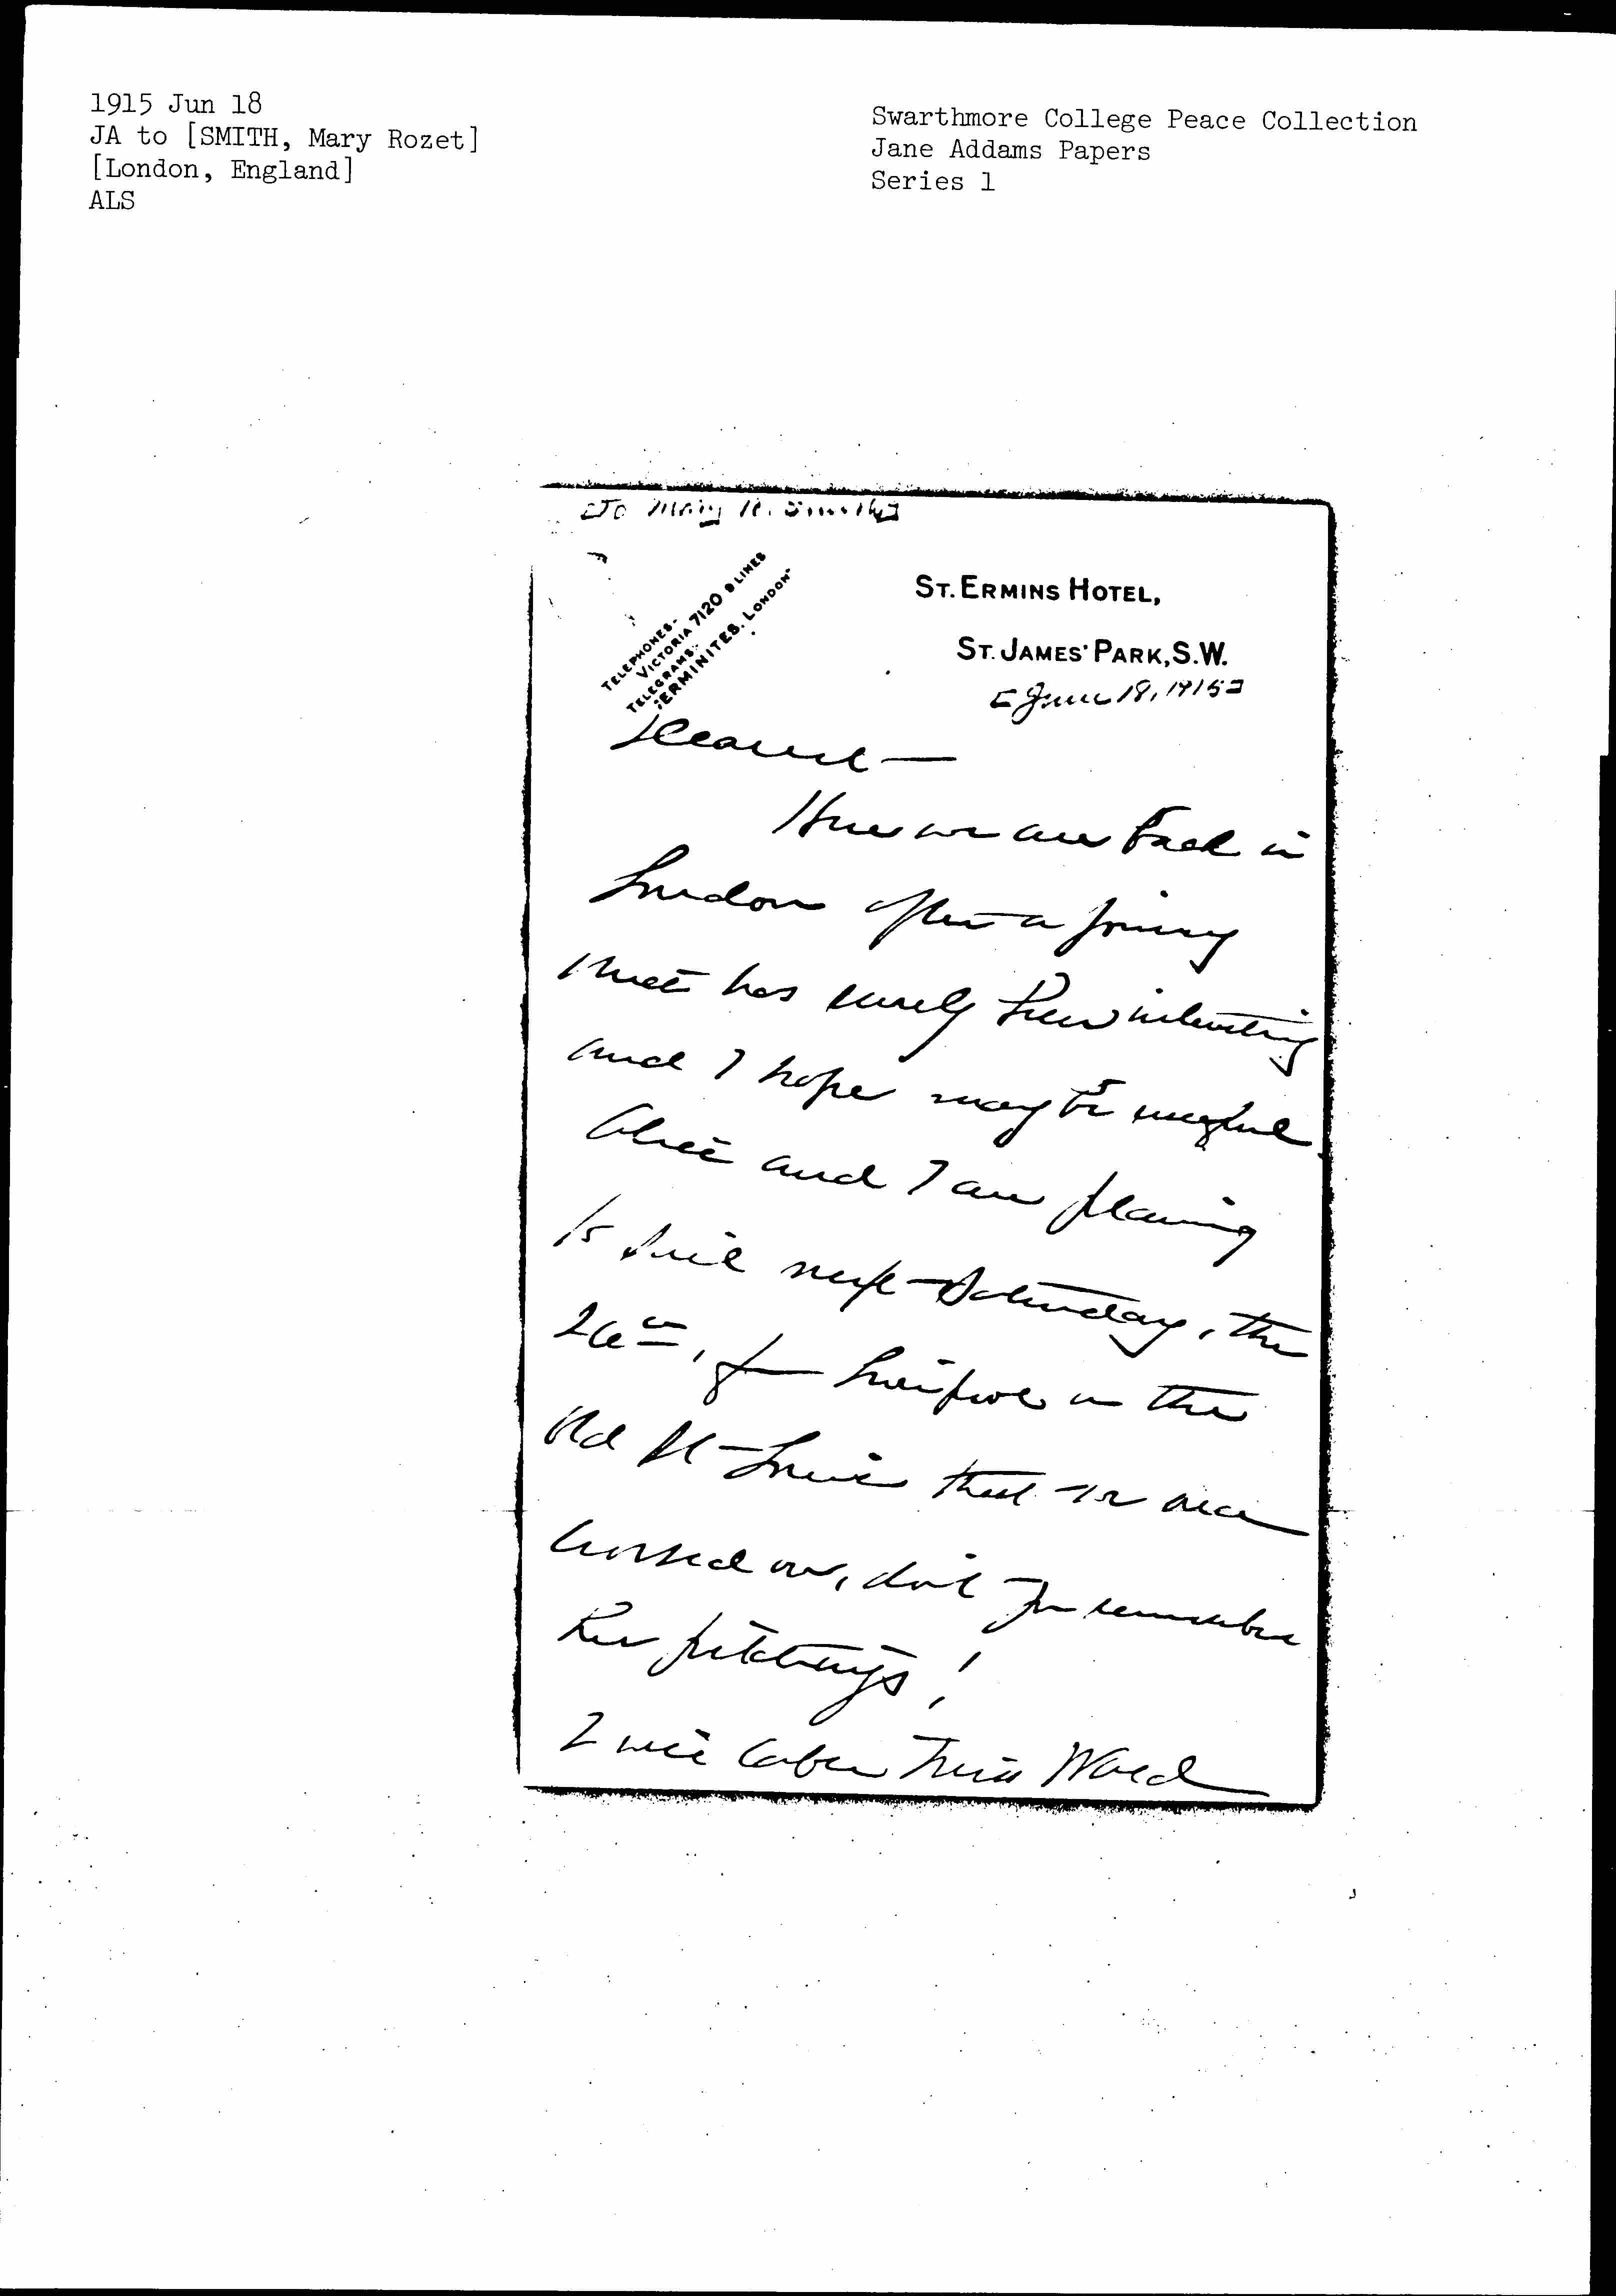 1915 Jun 18
JA to [SMITH, Mary Rozet]
[London, England]
ALS
Swarthmore College Peace Collection
Jane Addams Papers
Series 1
[To Mary R. Smith]
TELEPHONES-
VICTORIA 7120 9 LINES
TELEGRAMS-
"ERMINITES, LONDON"
ST. ERMINS HOTEL,
ST. JAMES' PARK, S.W.
[June 18, 1915]
Dearest —
Here we are back in
London after a journey
that has surely been interesting
and I hope may be useful.
Alice and I are planning
to sail next Saturday, the
26th, from Liverpool in the
old St Louis that we once
crossed on, don't you remember
her pitchings!
I will cable Miss Wald